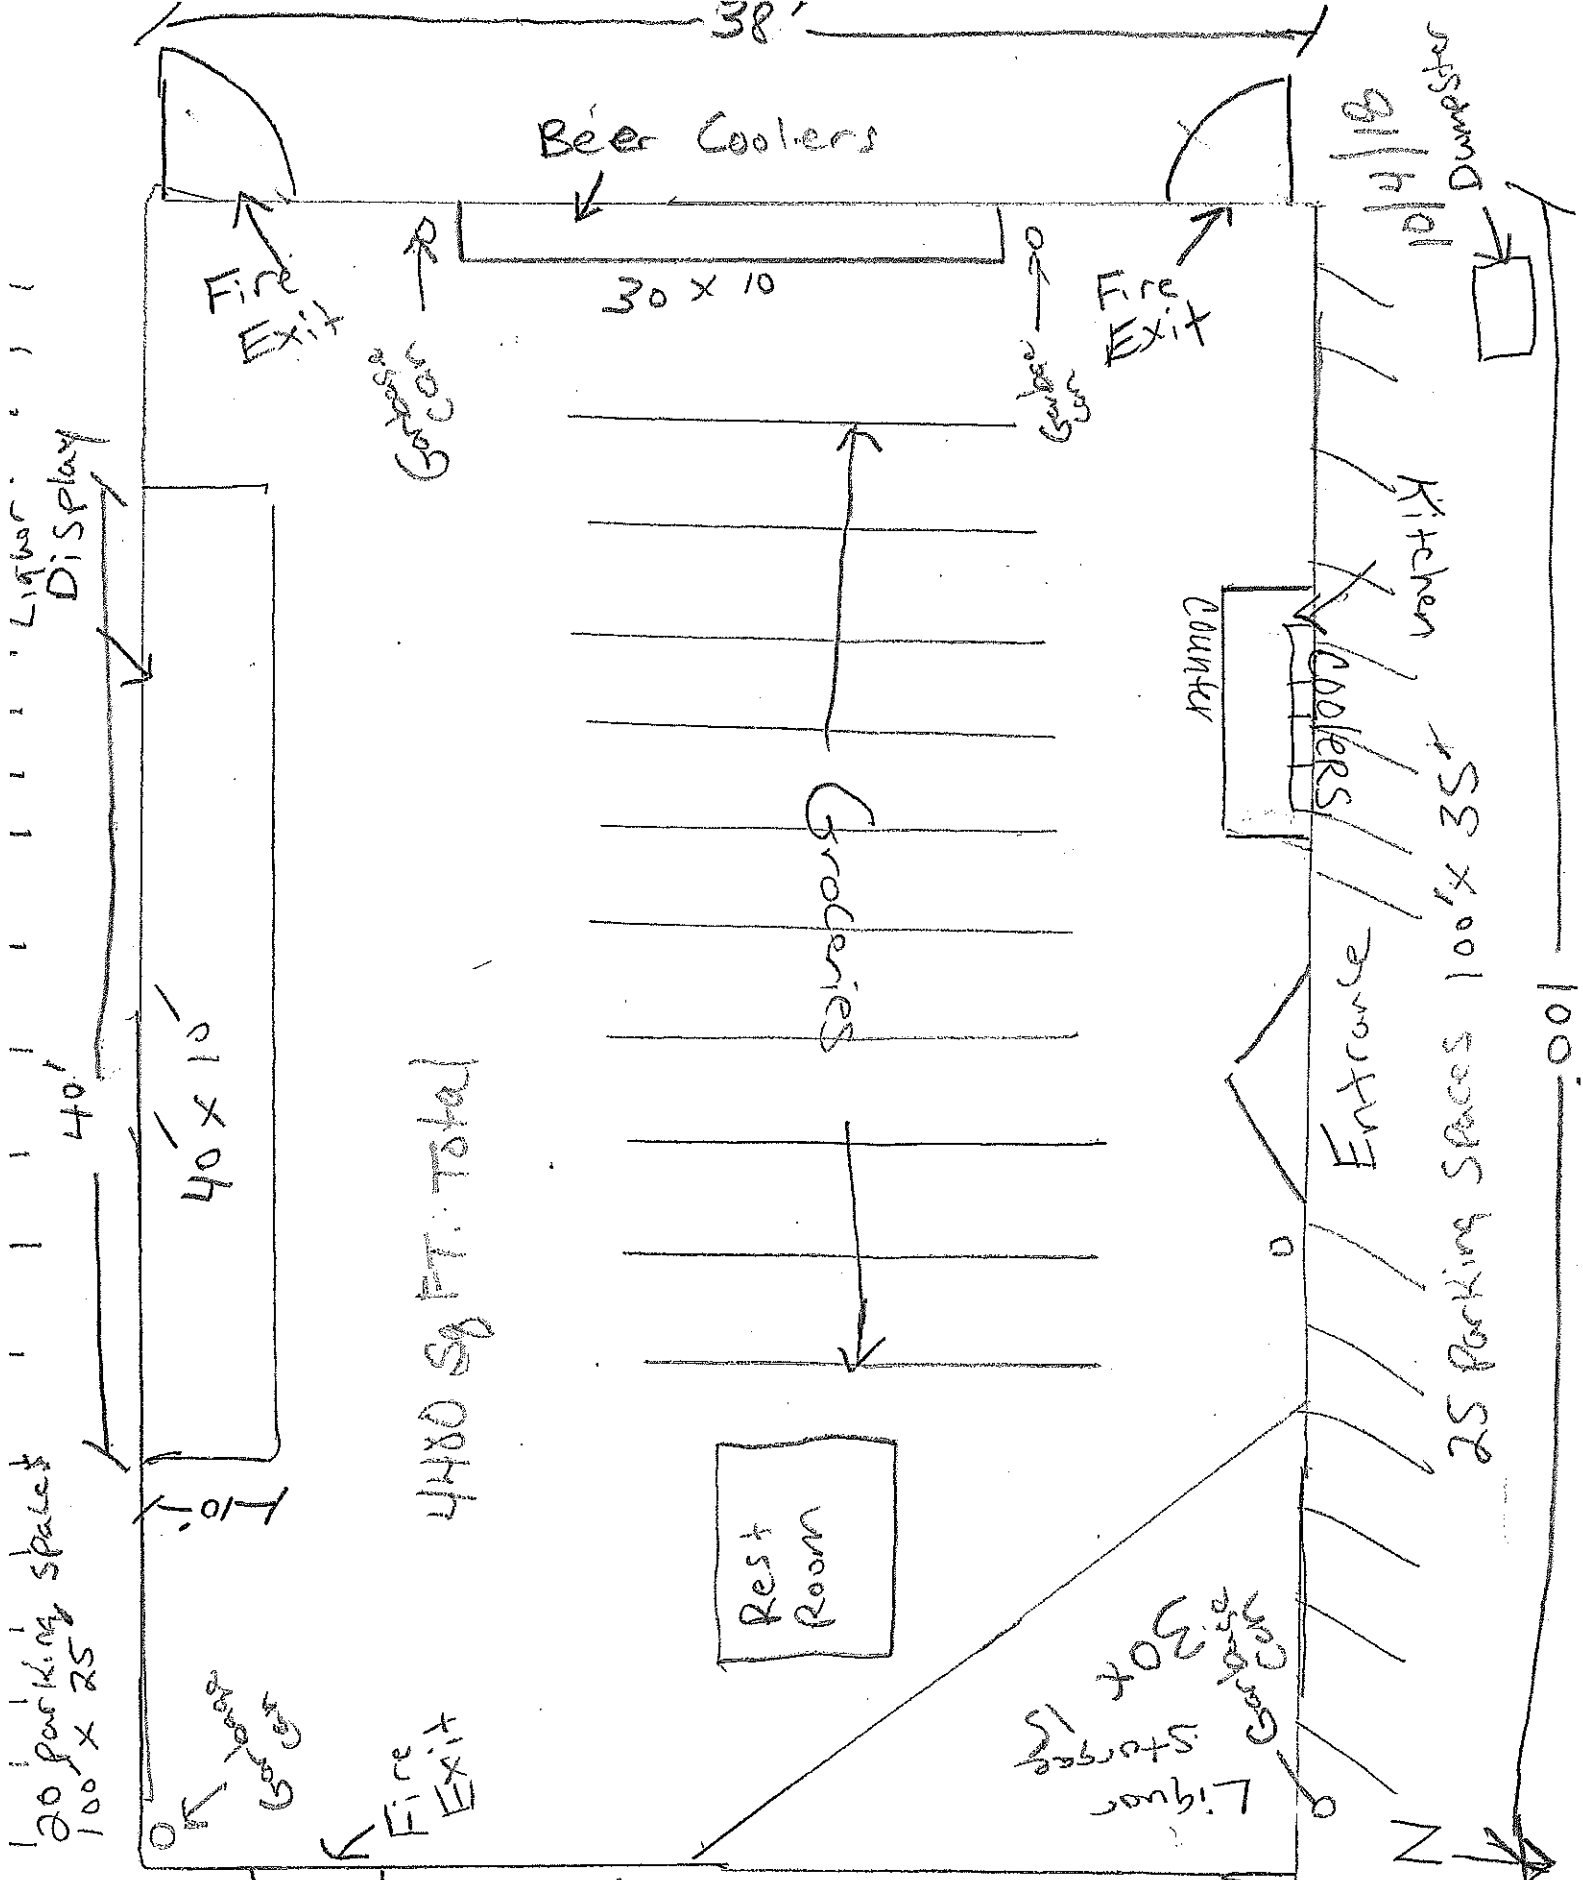 38'
Beer Coolers
10/4/18
Dumpster
Fire
Exit
Garbage
Can
30 x 10
Garbage
Can
Fire
Exit
Liquor
Display
Kitchen
Counter
Coolers
Groceries
40'
40' x 10'
10'
4480 Sq FT. Total
Entrance
25 Parking Spaces 100' x 35'
100'
Rest
Room
20 parking spaces
100' x 25'
Garbage
Can
Fire
Exit
Liquor
Storage
30 x
15
Garbage
Can
N